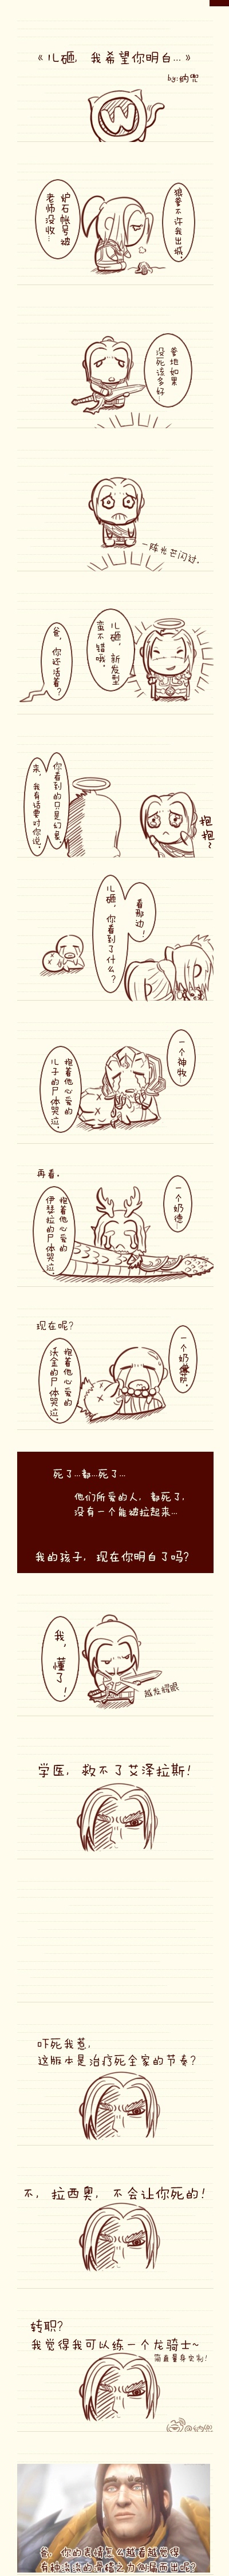 《儿砸，我希望你明白…》
by:纳兜
狼爹不许我出城。
炉石帐号被
老师没收…
爹地如果
没死该多好…
一阵光芒闪过。
儿砸，新发型
蛮不错哦。
爸，你还活着？
抱抱~
你看到的只是幻象
来，我有话要对你说。
看那边！
儿砸，你看到了什么？
一个神牧…
抱着他心爱的
儿子的尸体哭泣。
再看。
一个奶德…
抱着他心爱的
伊瑟拉的尸体哭泣。
现在呢？
一个奶萨…
抱着他心爱的
沃金的尸体哭泣。
死了…都…死了…
他们所爱的人，都死了，
没有一个能被拉起来…
我的孩子，现在你明白了吗？
我，懂了！
越发耀眼
学医，救不了艾泽拉斯！
吓死我惹，
这版本是治疗死全家的节奏？
不，拉西奥，不会让你死的！
转职？
我觉得我可以练一个龙骑士~
简直量身定制！
爸，你的表情怎么越看越觉得
有种滚滚的
之力似屋而出呢？